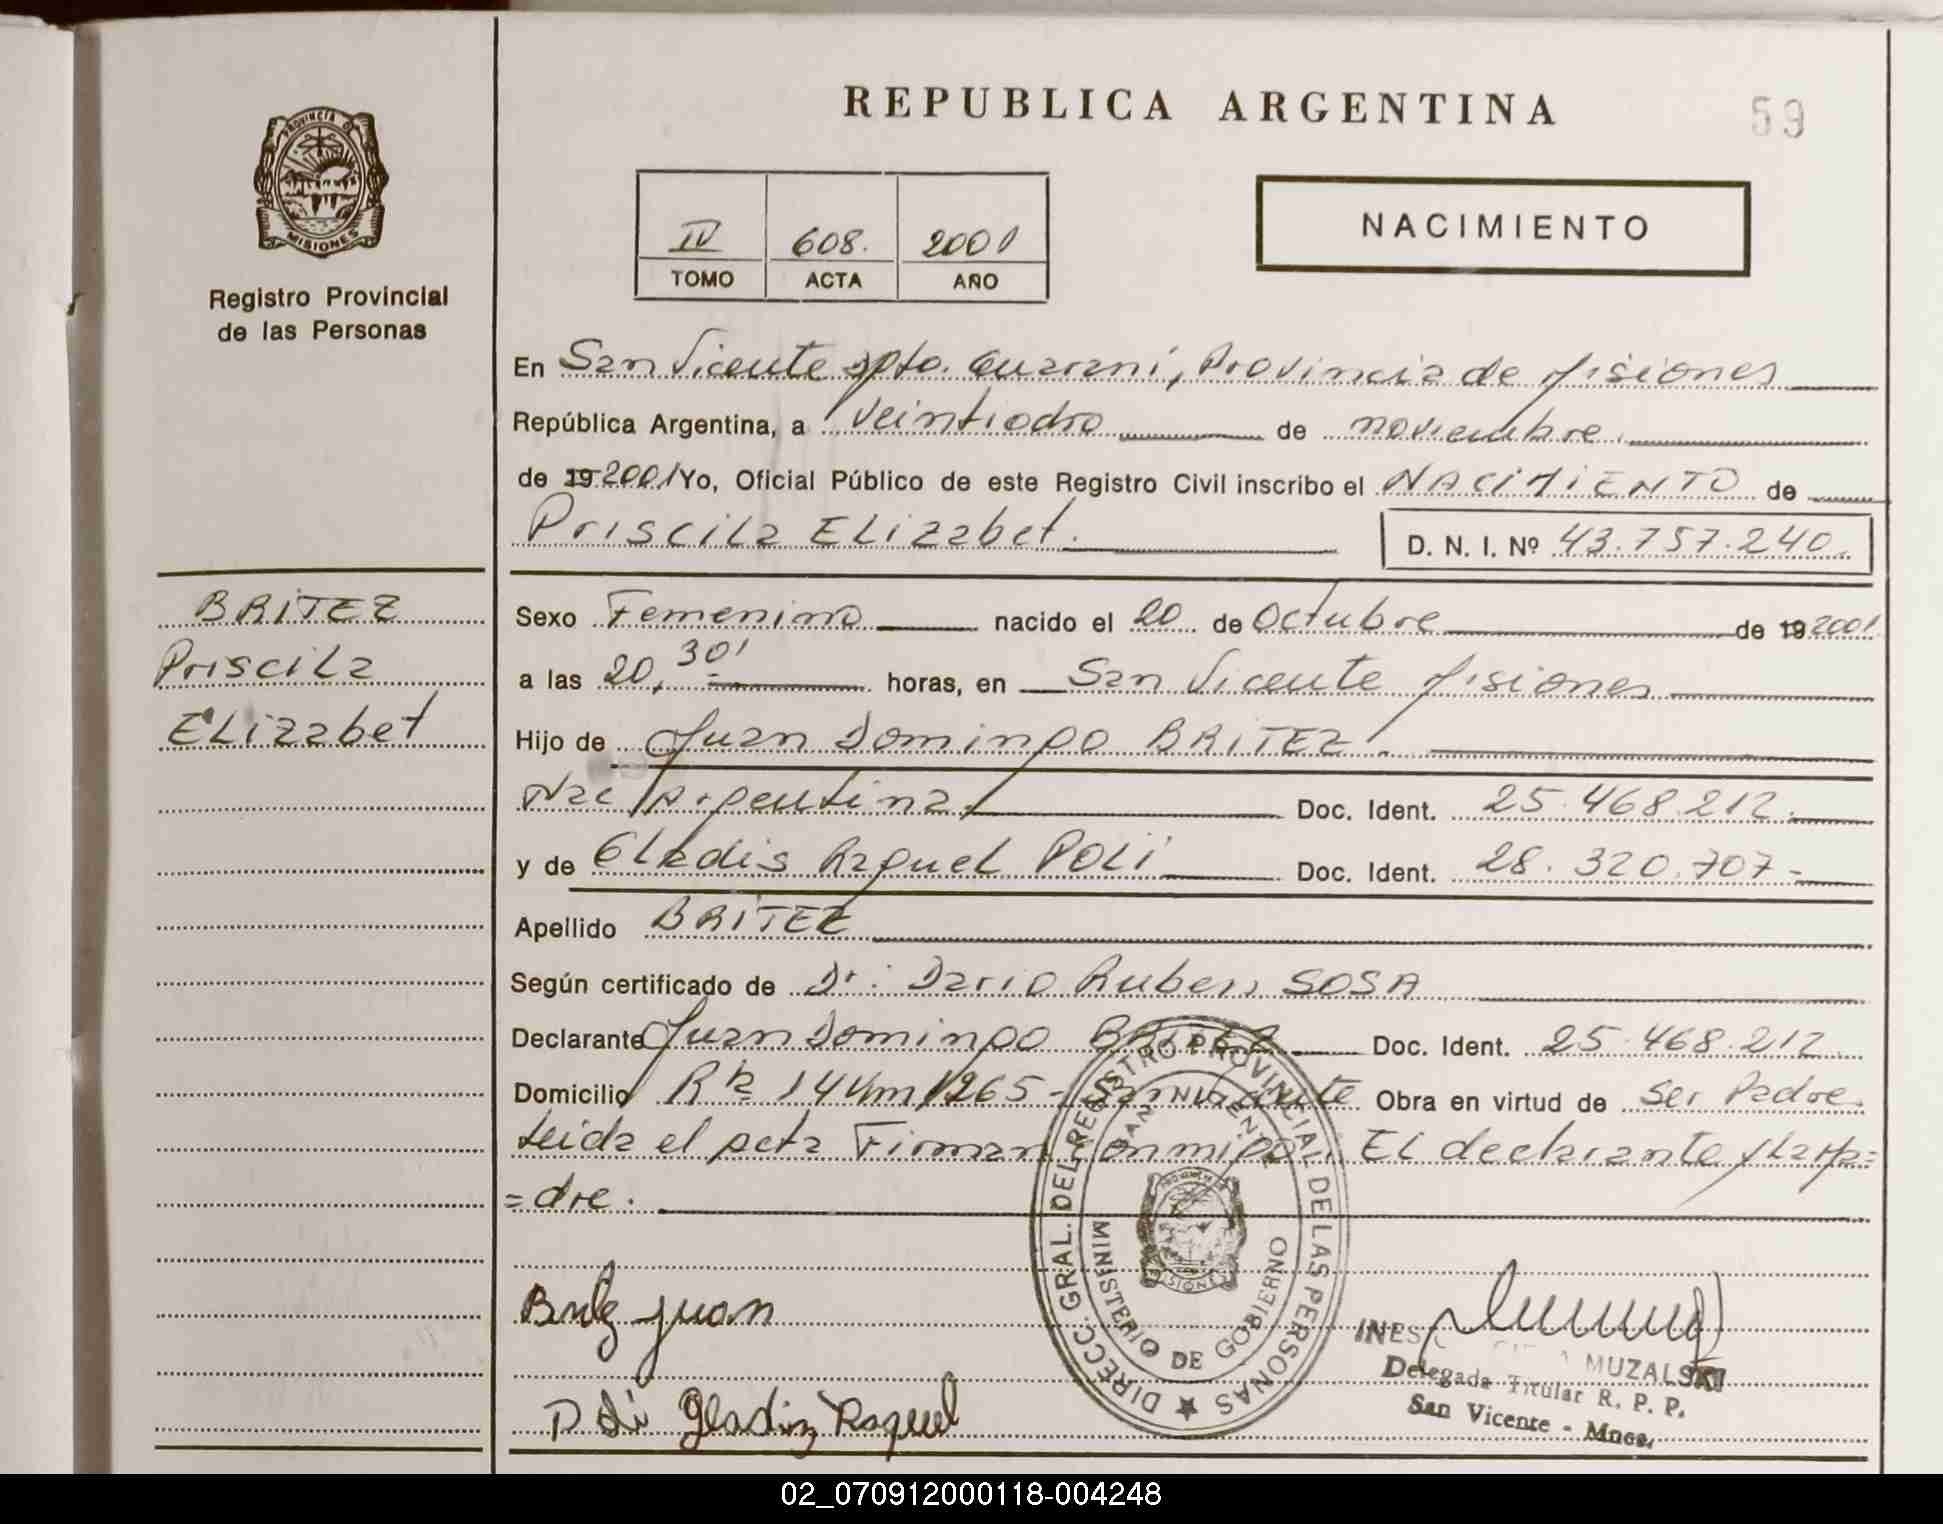 REPUBLICA ARGENTINA
59
PROVINCIA D
MISIONES
Registro Provincial
de las Personas
IV 608. 2001
TOMO ACTA AÑO
NACIMIENTO
En San Vicente Dpto. Guarani, Provincia de Misiones
República Argentina, a veintiocho de noviembre
de 19 2001 Yo, Oficial Público de este Registro Civil inscribo el NACIMIENTO de
Priscila ELizabet.
D. N. I. Nº 43.757.240.
BRITEZ
Priscila
ELizabet
Sexo Femenino nacido el 20 de Octubre de 19 2001
a las 20,30' horas, en San Vicente Misiones
Hijo de Juan Domingo BRITEZ.
Nac Argentina. Doc. Ident. 25.468.212.
y de Gladis Raquel POLI Doc. Ident. 28.320.707-
Apellido BRITEZ
Según certificado de Dr: Dario Ruben SOSA
Declarante Juan Domingo BRITEZ Doc. Ident. 25.468.212
Domicilio Rta 14 Km 1265 - San Vicente Obra en virtud de Ser Padre.
Leida el acta Firman conmigo: El declarante y La Ma=
=dre.
DIRECC. GRAL. DEL REGISTRO PROVINCIAL DE LAS PERSONAS
SAN VICENTE
MINISTERIO DE GOBIERNO
MISIONES
Britez juan
Poli gladiz Raquel
INES MUZALSKI
Delegada Titular R. P. P.
San Vicente - Mnes.
02_070912000118-004248